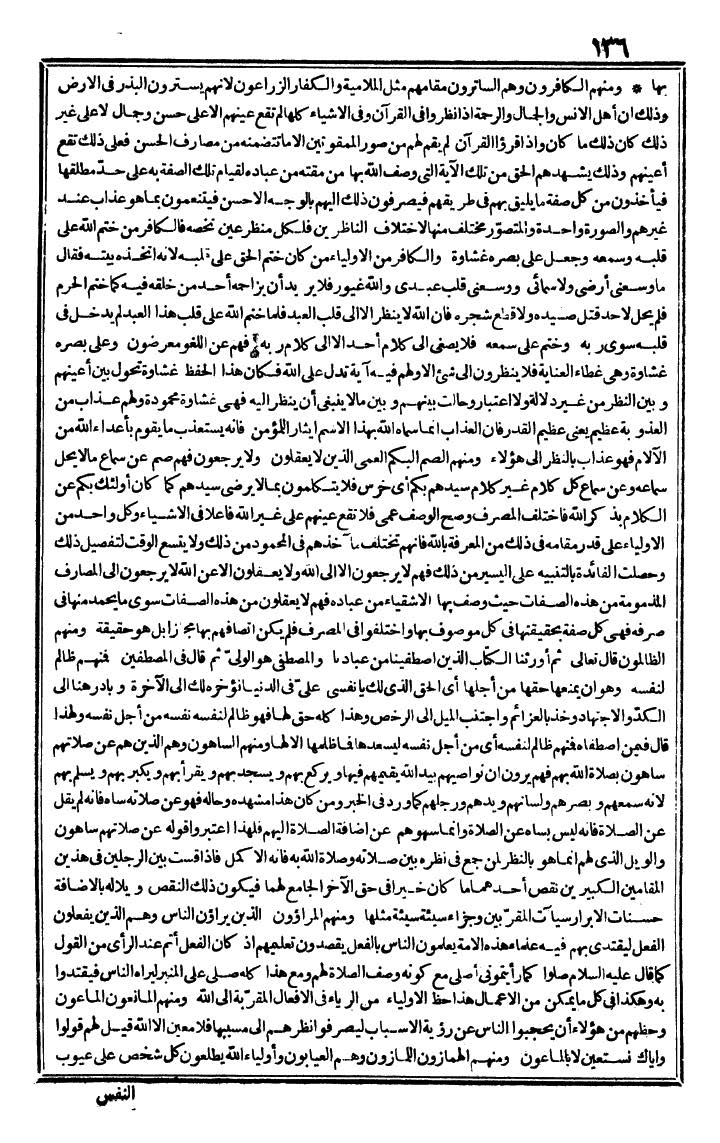 ١٣٦
بها * ومنهم الكافرون وهم الساترون مقامهم مثل الملامية والكفار الزراعون لانهم يسترون البذر فى الارض
وذلك ان أهل الانس والجمال والرحمة اذا نظروا فى القرآن وفى الاشياء كلها لم تقع عينهم الاعلى حسن وجمال لاعلى غير
ذلك كان ذلك ما كان واذا قرؤا القرآن لم يقم لهم من صور الممقوتين الا ما تتضمنه من مصارف الحسن فعلى ذلك تقع
أعينهم وذلك يشهدهم الحق من تلك الآية التى وصف الله بها من مقته من عباده لقيام تلك الصفة به على حدّ مطلقها
فيأخذون من كل صفة ما يليق بهم فى طريقهم فيصرفون ذلك اليهم بالوجه الاحسن فيتنعمون بما هو عذاب عند
غيرهم والصورة واحدة والمتصوّر مختلف منها لاختلاف الناظرين فلكل منظر عين تخصه فالكافر من ختم الله على
قلبه وسمعه وجعل على بصره غشاوة والكافر من الاولياء من كان ختم الحق على قلبه لانه اتخذه بيته فقال
ما وسعنى أرضى ولاسمائى ووسعنى قلب عبدى والله غيور فلا يريد أن يزاحمه أحد من خلقه فيه كما ختم الحرم
فلم يحل لاحد قتل صيده ولا قطع شجره فان الله لا ينظر الا الى قلب العبد فلما ختم الله على قلب هذا العبد لم يدخل فى
قلبه سوى ربه وختم على سمعه فلا يصغى الى كلام أحد الا الى كلام ربه فهم عن اللغو معرضون وعلى بصره
غشاوة وهى غطاء العناية فلا ينظرون الى شئ الا ولهم فيه آية تدل على الله فكان هذا الحفظ غشاوة تحول بين أعينهم
وبين النظر من غير دلالة ولا اعتبار وحالت بينهم وبين ما لا ينبغى أن ينظر اليه فهى غشاوة محمودة ولهم عذاب من
العذوبة عظيم يعنى عظيم القدر فان العذاب انما سماه الله بهذا الاسم ايثار اللؤمن فانه يستعذب ما يقوم بأعداء الله من
الآلام فهو عذاب بالنظر الى هؤلاء ومنهم الصم البكم العمى الذين لا يعقلون ولا يرجعون فهم صم عن سماع ما لا يحل
سماعه وعن سماع كل كلام غير كلام سيدهم بكم أى خرس فلا يتكلمون بما لا يرضى سيدهم كما كان أولئك بكم عن
الكلام بذكر الله فاختلف المصرف وصح الوصف عمى فلا تقع عينهم على غير الله فاعلا فى الاشياء وكل واحد من
الاولياء على قدر مقامه فى ذلك من المعرفة بالله فانهم تختلف مآخذهم فى المحمود من ذلك ولا يتسع الوقت لتفصيل ذلك
وحصلت الفائدة بالتنبيه على اليسير من ذلك فهم لا يرجعون الا الى الله ولا يعقلون الاعن الله لا يرجعون الى المصارف
المذمومة من هذه الصفات حيث وصف بها الاشقياء من عباده فهم لا يعقلون من هذه الصفات سوى ما يحمد منها فى
صرفه فهى كل صفة بحقيقتها فى كل موصوف بها واختلفوا فى المصرف فلم يكن اتصافهم بها مجازا بل هو حقيقة ومنهم
الظالمون قال تعالى ثم أورثنا الكتاب الذين اصطفينا من عبادنا والمصطفى هو الولىّ ثم قال فى المصطفين فنهم ظالم
لنفسه وهو ان يمنعها حقها من أجلها أى الحق الذى لك يا نفسى علىّ فى الدنيا نؤخره لك الى الآخرة وبادر هنا الى
الكدّ والاجتهاد وخذ بالعزائم واجتنب الميل الى الرخص وهذا كله حق لها فهو ظالم لنفسه نفسه من أجل نفسه ولهذا
قال فيمن اصطفاه فنهم ظالم لنفسه أى من أجل نفسه ليسعدها فاظلمها الالها ومنهم الساهون وهم الذين هم عن صلاتهم
ساهون بصلاة الله بهم فهم يرون ان نواصيهم بيد الله يقيمهم فيها ويركع بهم ويسجد بهم ويقرأ بهم ويكبر بهم ويسلم بهم
لانه سمعهم وبصرهم ولسانهم ويدهم ورجلهم كما ورد فى الخبر ومن كان هذا مشهده وحاله فهو عن صلاته ساه فانه لم يقل
عن الصلاة فانه ليس بساه عن الصلاة وانما سهوهم عن اضافة الصلاة اليهم فلهذا اعتبروا قوله عن صلاتهم ساهون
والويل الذى لهم انما هو بالنظر لمن جمع فى نظره بين صلاته وصلاة الله به فانه الاكمل فاذا قست بين الرجلين فى هذين
المقامين الكبيرين نقص أحدهما ما كان خيرا فى حق الآخر الجامع لهما فيكون ذلك النقص ويلا له بالاضافة
حسنات الابرار سيآت المقرّبين وجزاء سيئة سيئة مثلها ومنهم المراؤون الذين يراؤن الناس وهم الذين يفعلون
الفعل ليقتدى بهم فيه علماء هذه الامة يعلمون الناس بالفعل يقصدون تعليمهم اذ كان الفعل أتم عند الرأى من القول
كما قال عليه السلام صلوا كما رأيتمونى أصلى مع كونه وصف الصلاة لهم ومع هذا كله صلى على المنبر ليراه الناس فيقتدوا
به وهكذا فى كل ما يمكن من الاعمال هذا حظ الاولياء من الرياء فى الافعال المقرّبة الى الله ومنهم المانعون الماعون
وحظهم من هؤلاء أن يحجبوا الناس عن رؤية الاسباب ليصرفوا نظرهم الى مسببها فلا معين الا الله قيل لهم قولوا
واياك نستعين لا بالماعون ومنهم الهمازون اللمازون وهم العيابون وأولياء الله يطلعون كل شخص على عيوب
النفس